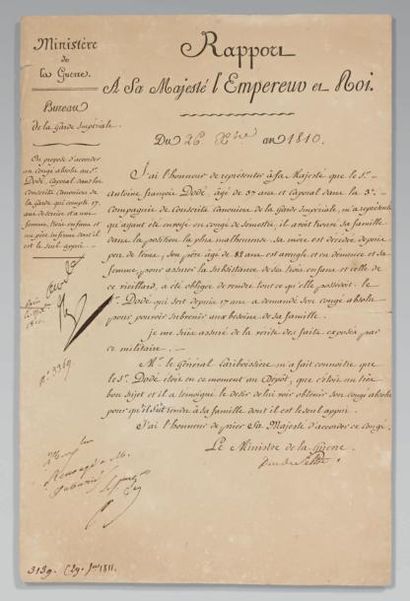 Ministère
de
la Guerre.
Bureau
de la Garde Impériale.
On propose d'accorder
un congé absolu au Sr.
Dodé, caporal dans les
Conscrits Canoniers de
la Garde qui compte 17
ans de service et a une
femme, trois enfans et
un père infirme dont il
est le seul appui
Rapport
A Sa Majesté l'Empereur et Roi.
Du 26 Xbre an 1810.
J'ai l'honneur de représenter à Sa Majesté que le Sr.
Antoine françois Dodé âgé de 37 ans et caporal dans la 3e.
Compagnie de Conscrits Canoniers de la Garde Impériale, m'a représenté
qu'ayant été envoyé en congé de semestre, il avoit trouvé sa famille
dans la position la plus malheureuse. sa mère est décédée depuis
peu de tems, son père agé de 82 ans est aveugle et en démence et sa
femme, pour assurer la subsistance de ses trois enfans et celle de
ce vieillard, a été obligée de vendre tout ce qu'elle possédoit. le
Sr. Dodé qui sert depuis 17 ans a demandé son congé absolu
pour pouvoir subvenir aux besoins de sa famille.
je me suis assuré de la vérité des faits exposés par
ce militaire.
Mr. le Général Lariboissière m'a fait connoître que
le Sr. Dodé étoit en ce moment au Dépôt, que c'étoit un très
bon sujet et il a témoigné le désir de lui voir obtenir son congé absolu
pour qu'il fut rendu à sa famille dont il est le seul appui.
J'ai l'honneur de prier Sa Majesté d'accorder ce congé.
Le Ministre de la Guerre
Duc de Feltre
No. 3369
3139. (29. Jer 1811.